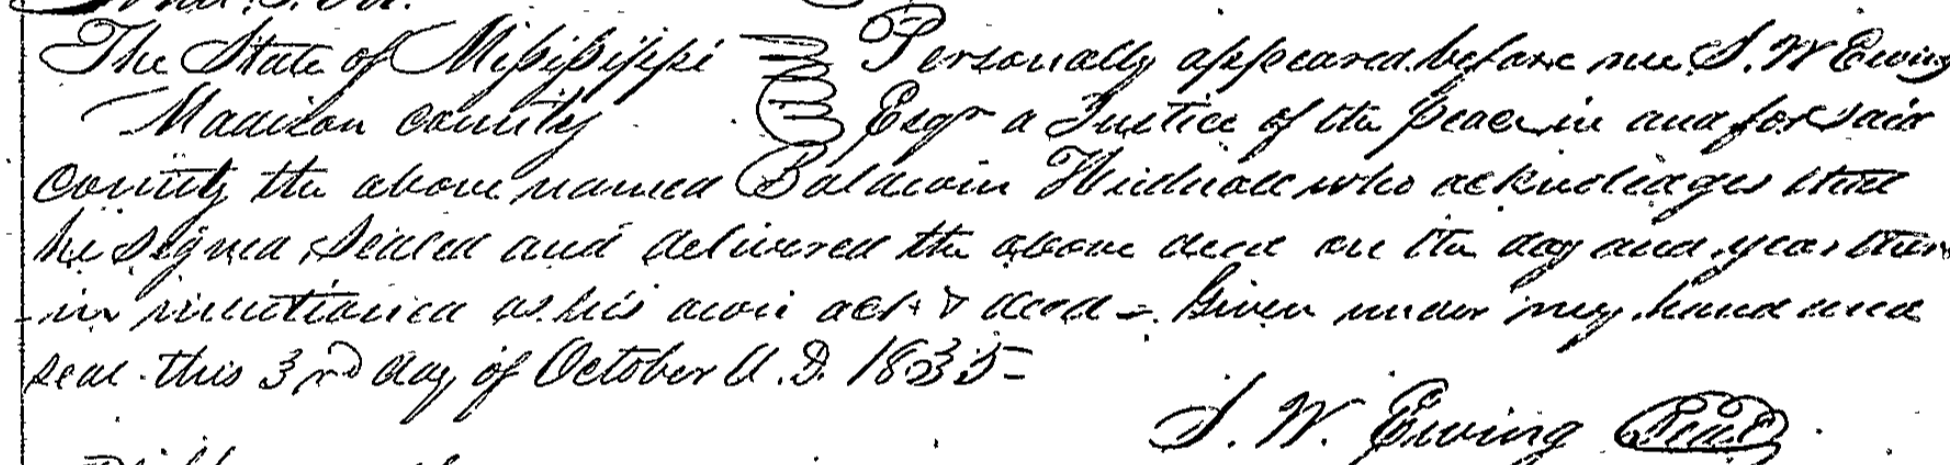 The State of Mississippi } Personally appeared before me S. W Ewing
Madison County } Esqr a Justice of the Peace in and for said
County the above named Baldwin who acknowledges that
he signed sealed and delivered the above deed on the day and year there
in mentioned as his own act & deed - Given under my hand and
seal this 3rd day of October A. D. 1835 -
S. W. Ewing Seal